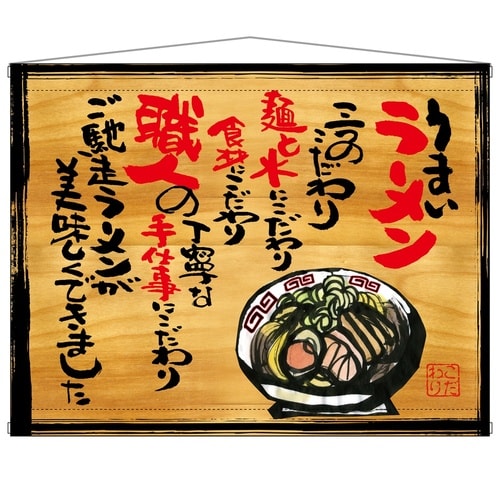 うまい
ラーメン
三のこだわり
麺と水にこだわり
食材にこだわり
職人の丁寧な
手仕事にこだわり
ご馳走ラーメンが
美味しくできました
こだわり